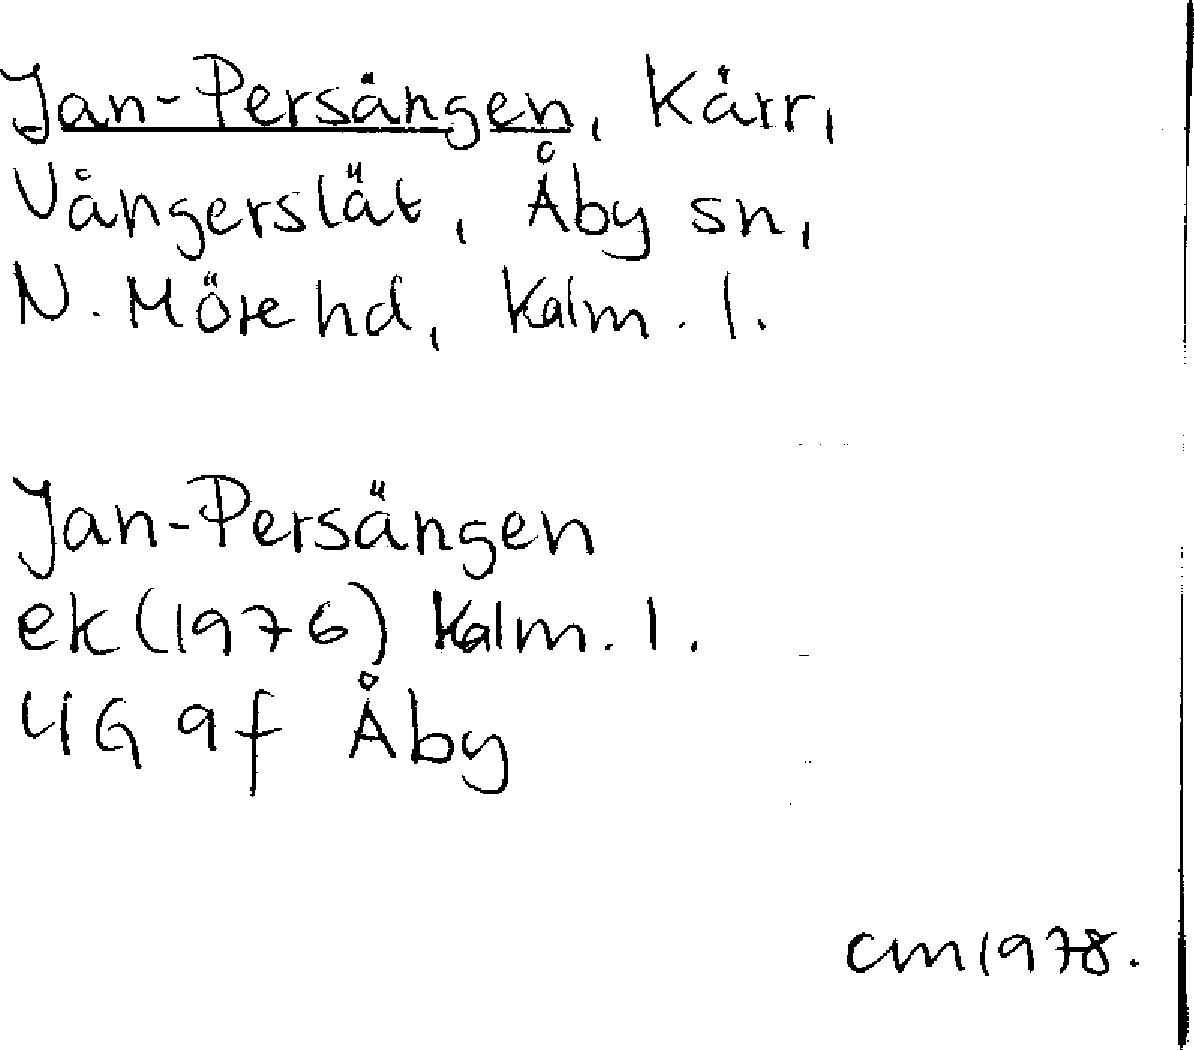 Jan-Persängen, Kärr,
Vångerslät, Åby sn,
N. Möre hd, Kalm. l.
Jan-Persängen
ek (1976) Kalm. l.
4G 9f Åby
CM 1978.